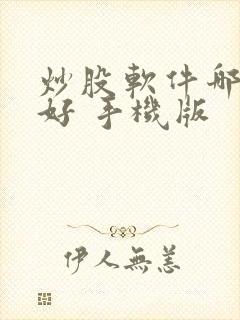 炒股軟件哪
好 手機版
伊人無恙